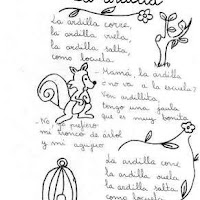 La ardilla
La ardilla corre,
la ardilla vuela,
la ardilla salta,
como locuela.
- Mamá, la ardilla
¿no va a la escuela?
Ven ardillita,
tengo una jaula
que es muy bonita
- No, yo prefiero
mi tronco de árbol
y mi agujero
La ardilla corre
la ardilla vuela
la ardilla salta
como locuela